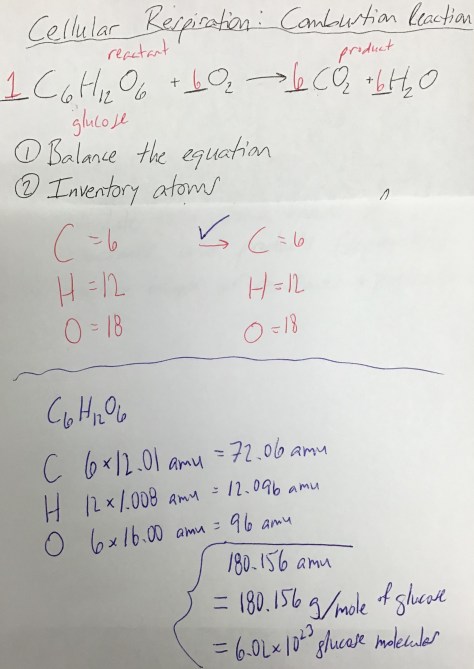 Cellular Respiration: Combustion Reaction
reactant product
1 C6H12O6 + 6 O2 → 6 CO2 + 6 H2O
glucose
① Balance the equation
② Inventory atoms
C = 6 ✓ → C = 6
H = 12 H = 12
O = 18 O = 18
C6H12O6
C 6 × 12.01 amu = 72.06 amu
H 12 × 1.008 amu = 12.096 amu
O 6 × 16.00 amu = 96 amu
180.156 amu
= 180.156 g/mole of glucose
= 6.02 × 10²³ glucose molecules